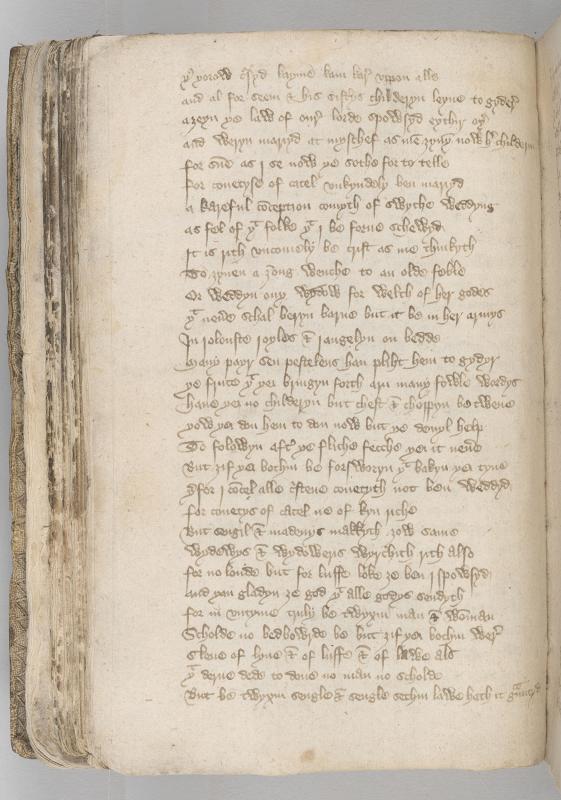 yͭ yorow crͥsyd kayme kam kar vppon alle
and al for seem & his sistris childeryn leyne to gyder
aȝeyn ye law of our lorde spowsyd eythir oyͬ
and weryn maryd at myschef as me ȝyuyn now hͬ childeryn
ffor sūe as i se now ye sothe for to telle
ffor couetyse of catel vnkyndely ben maryd
a kareful cōception comyth of swyche weddyng
as fel of yͤ folke yͭ i be forne schewyd
It is rith vncomely be crist as me thinkyth
To ȝyuen a ȝong wenche to an olde feble
Or weddyn ony wydow for welth of her godes
yͭ neuͥe schal beryn barne but it be in her armys
In jolouste joyles & jangelyn on bedde
Many payr sen pestelens han pliht hem to gydyr
ye frute yͭ yei bringyn forth arn many fowle wordys
haue yei no childeryn but chest & choppyn be twene
yow yei don hem to don now but ye deuyl help
To folowyn aftͥ ye fliche fecche yei it neuͥe
But ȝif yei bothin be forsworyn yͭ bakyn yei tyne
yͬfor i cōcel alle cͥstene coueytyth not ben weddyd
ffor couetys of catel ne of kyn riche
But sengil & madenys makkyth ȝow same
wydowys & wydoweris wyrchith rith also
ffor no londe but for luffe loke ȝe ben i spowsyd
And yan gladyn ȝe god yͭ alle godys sendyth
ffor in vntyme truly be twyxin man & wōman
Scholde no bedbowrde be but ȝif yei bothin weͬ
Clene of lyue & of luffe & of lawe als
yͭ derne dede to done no man no scholde
But be twyxin sengle & sengle sethin lawe hath it gͣuntyd